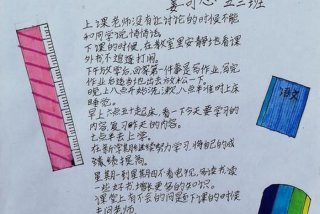 上课老师没有让讨论的时候不能
和同学说悄悄话
下课的时候,在教室里安静地看课
外书不追逐打闹。
下午放学后,回家第一件事是写作业,写完
作业后可以出去放松一下。
晚上八点开始洗漱,八点半准时上床
睡觉。
早上六点五十起床,看一下今天要学习的
内容,复习昨天的内容。
七点半去上学。
在新学期继续努力学习,将自己的成
绩继续提高。
星期一到星期四不看电视,阅读我读
一些好书,增长更多的知识。
课堂上有不会的问题到下课的时候
去问老师
语文